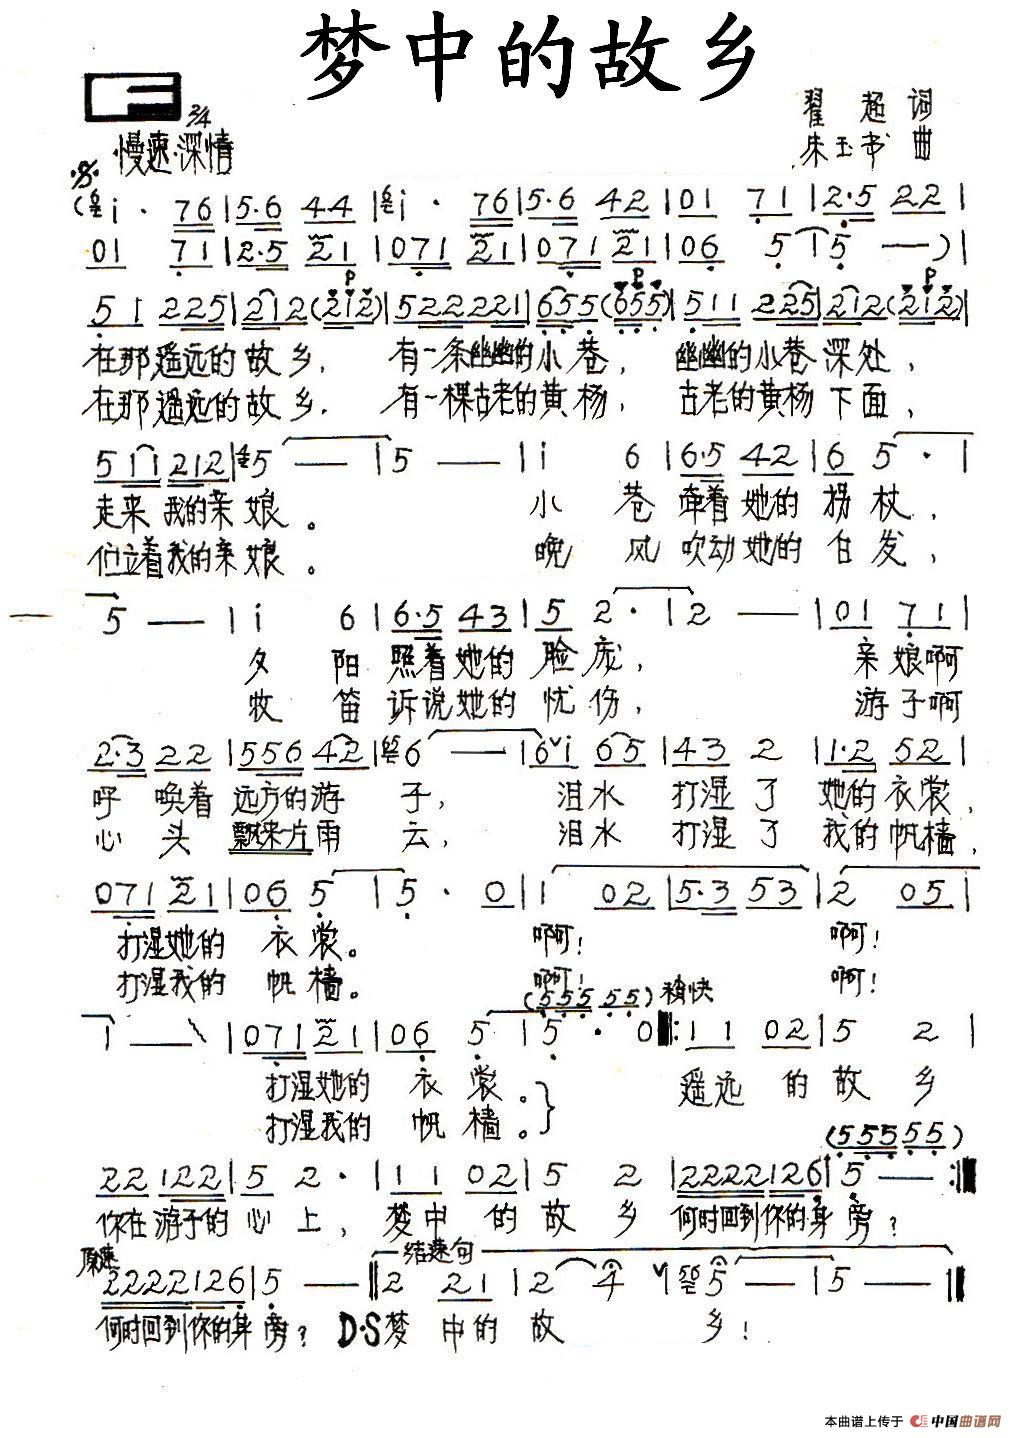 梦中的故乡
3/4
翟超 词
慢速 深情
朱玉书 曲
(i · 76 | 5·6 44 | i · 76 | 5·6 42 | 01 71 | 2·5 22 |
01 71 | 2·5 21 | 071 21 | 071 21 | 06 5 | 5 — ) |
51 225 | 212 (212) | 522221 | 655 (655) | 511 225 | 212 (212) |
在那遥远的故乡， 有一条幽幽的小巷， 幽幽的小巷深处，
在那遥远的故乡． 有一棵古老的黄杨， 古老的黄杨下面，
511 212 | 5 — | 5 — | i 6 | 6·5 42 | 6 5 · |
走来我的亲娘。 小巷牵着她的拐杖，
伫立着我的亲娘。 晚风吹动她的白发，
5 — | i 6 | 6·5 43 | 5 2 · | 2 — | 01 71 |
夕阳照着她的脸庞， 亲娘啊
牧笛诉说她的忧伤， 游子啊
2·3 22 | 556 42 | 6 — | 6 i 65 | 43 2 | 1·2 52 |
呼唤着远方的游子， 泪水打湿了她的衣裳，
心头飘来一片雨云， 泪水打湿了我的帆樯，
071 21 | 06 5 | 5 · 0 | 1 02 | 5·3 53 | 2 05 |
打湿她的衣裳。 啊！ 啊！
打湿我的帆樯。 啊！ 啊！
(555 55) 稍快
1 — | 071 21 | 06 5 | 5 · 0 |: 11 02 | 5 2 |
打湿她的衣裳。 遥远的故乡
打湿我的帆樯。
(555 55)
22 122 | 5 2 · | 11 02 | 5 2 | 2222 126 | 5 — :|
你在游子的心上， 梦中的故乡何时回到你的身旁？
原速 结速句
2222 126 | 5 — || 2 21 | 2 4 | 56 5 — | 5 — ||
何时回到你的身旁？ D·S梦中的故乡！
本曲谱上传于 中国曲谱网